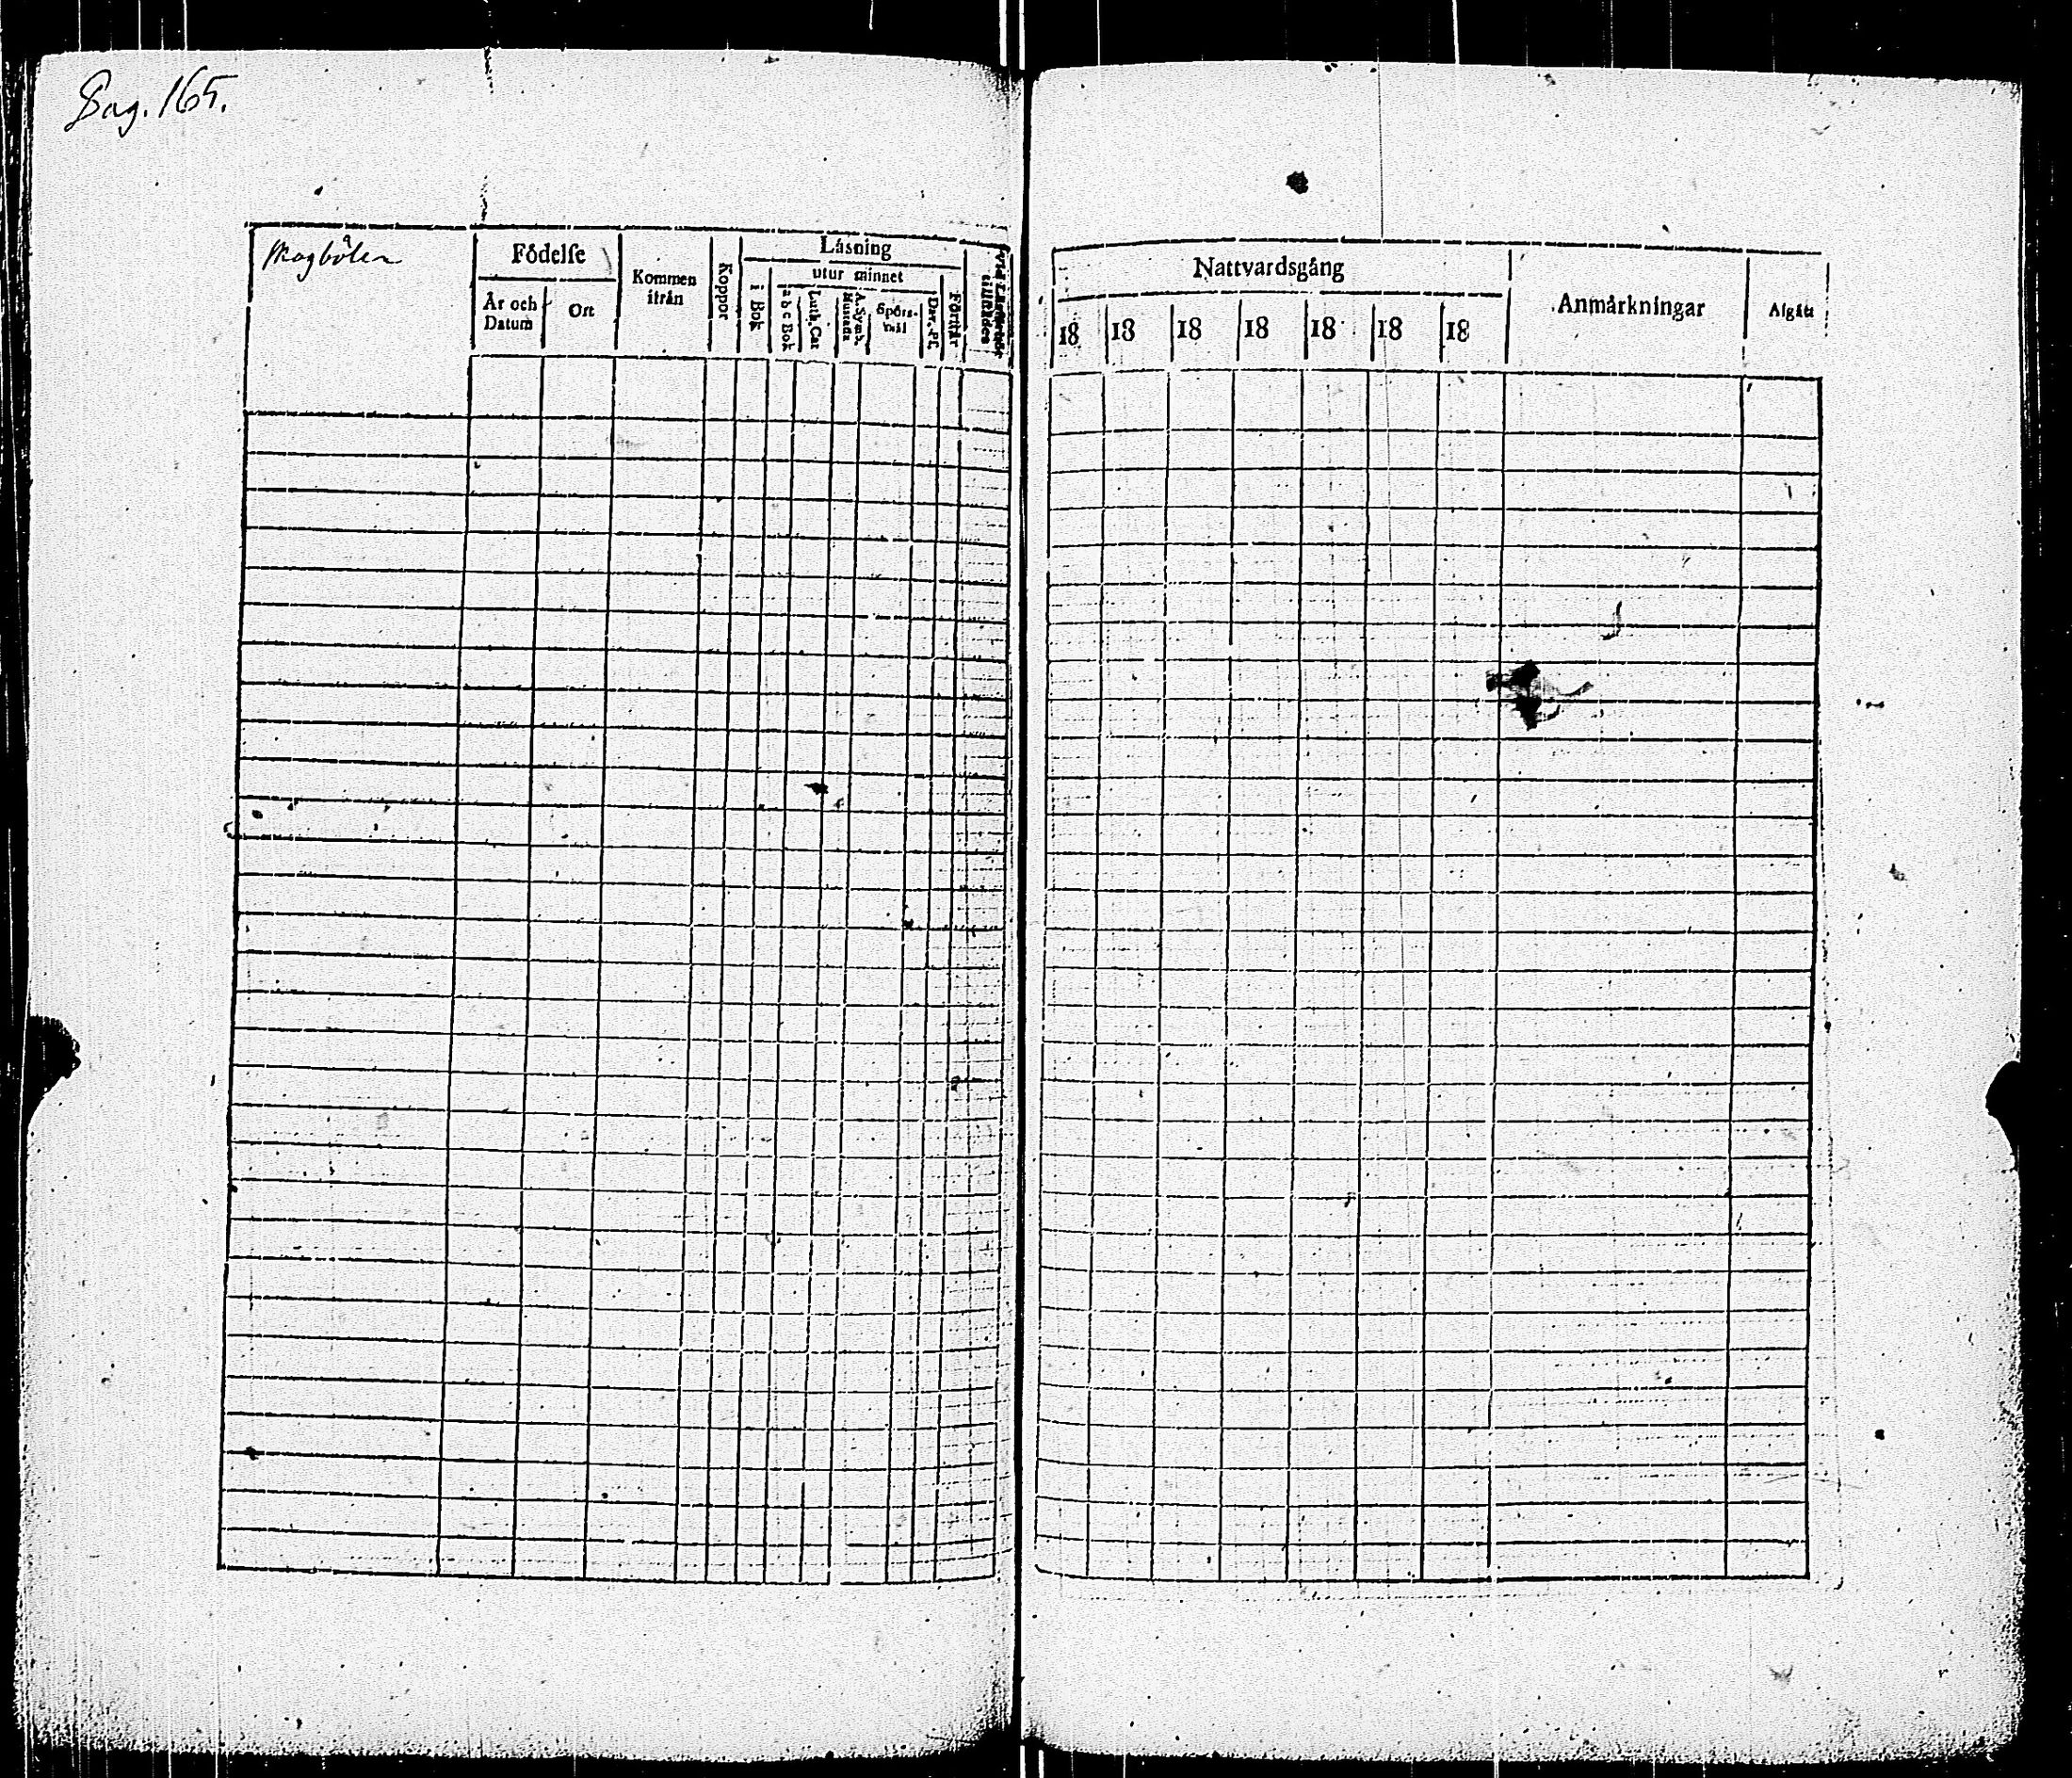 Pag. 165.
Magbölen
Födelse
År och Datum
Ort
Kommen ifrån
Koppor
Låsning
i Bok
utur minnet
a b c Bok
Luth. Cat
A. Symb. Hustafla
Spörsmål
Dav. Ps
Förstår
Nattvardsgång
18 18 18 18 18 18 18
Anmårkningar
Afgått